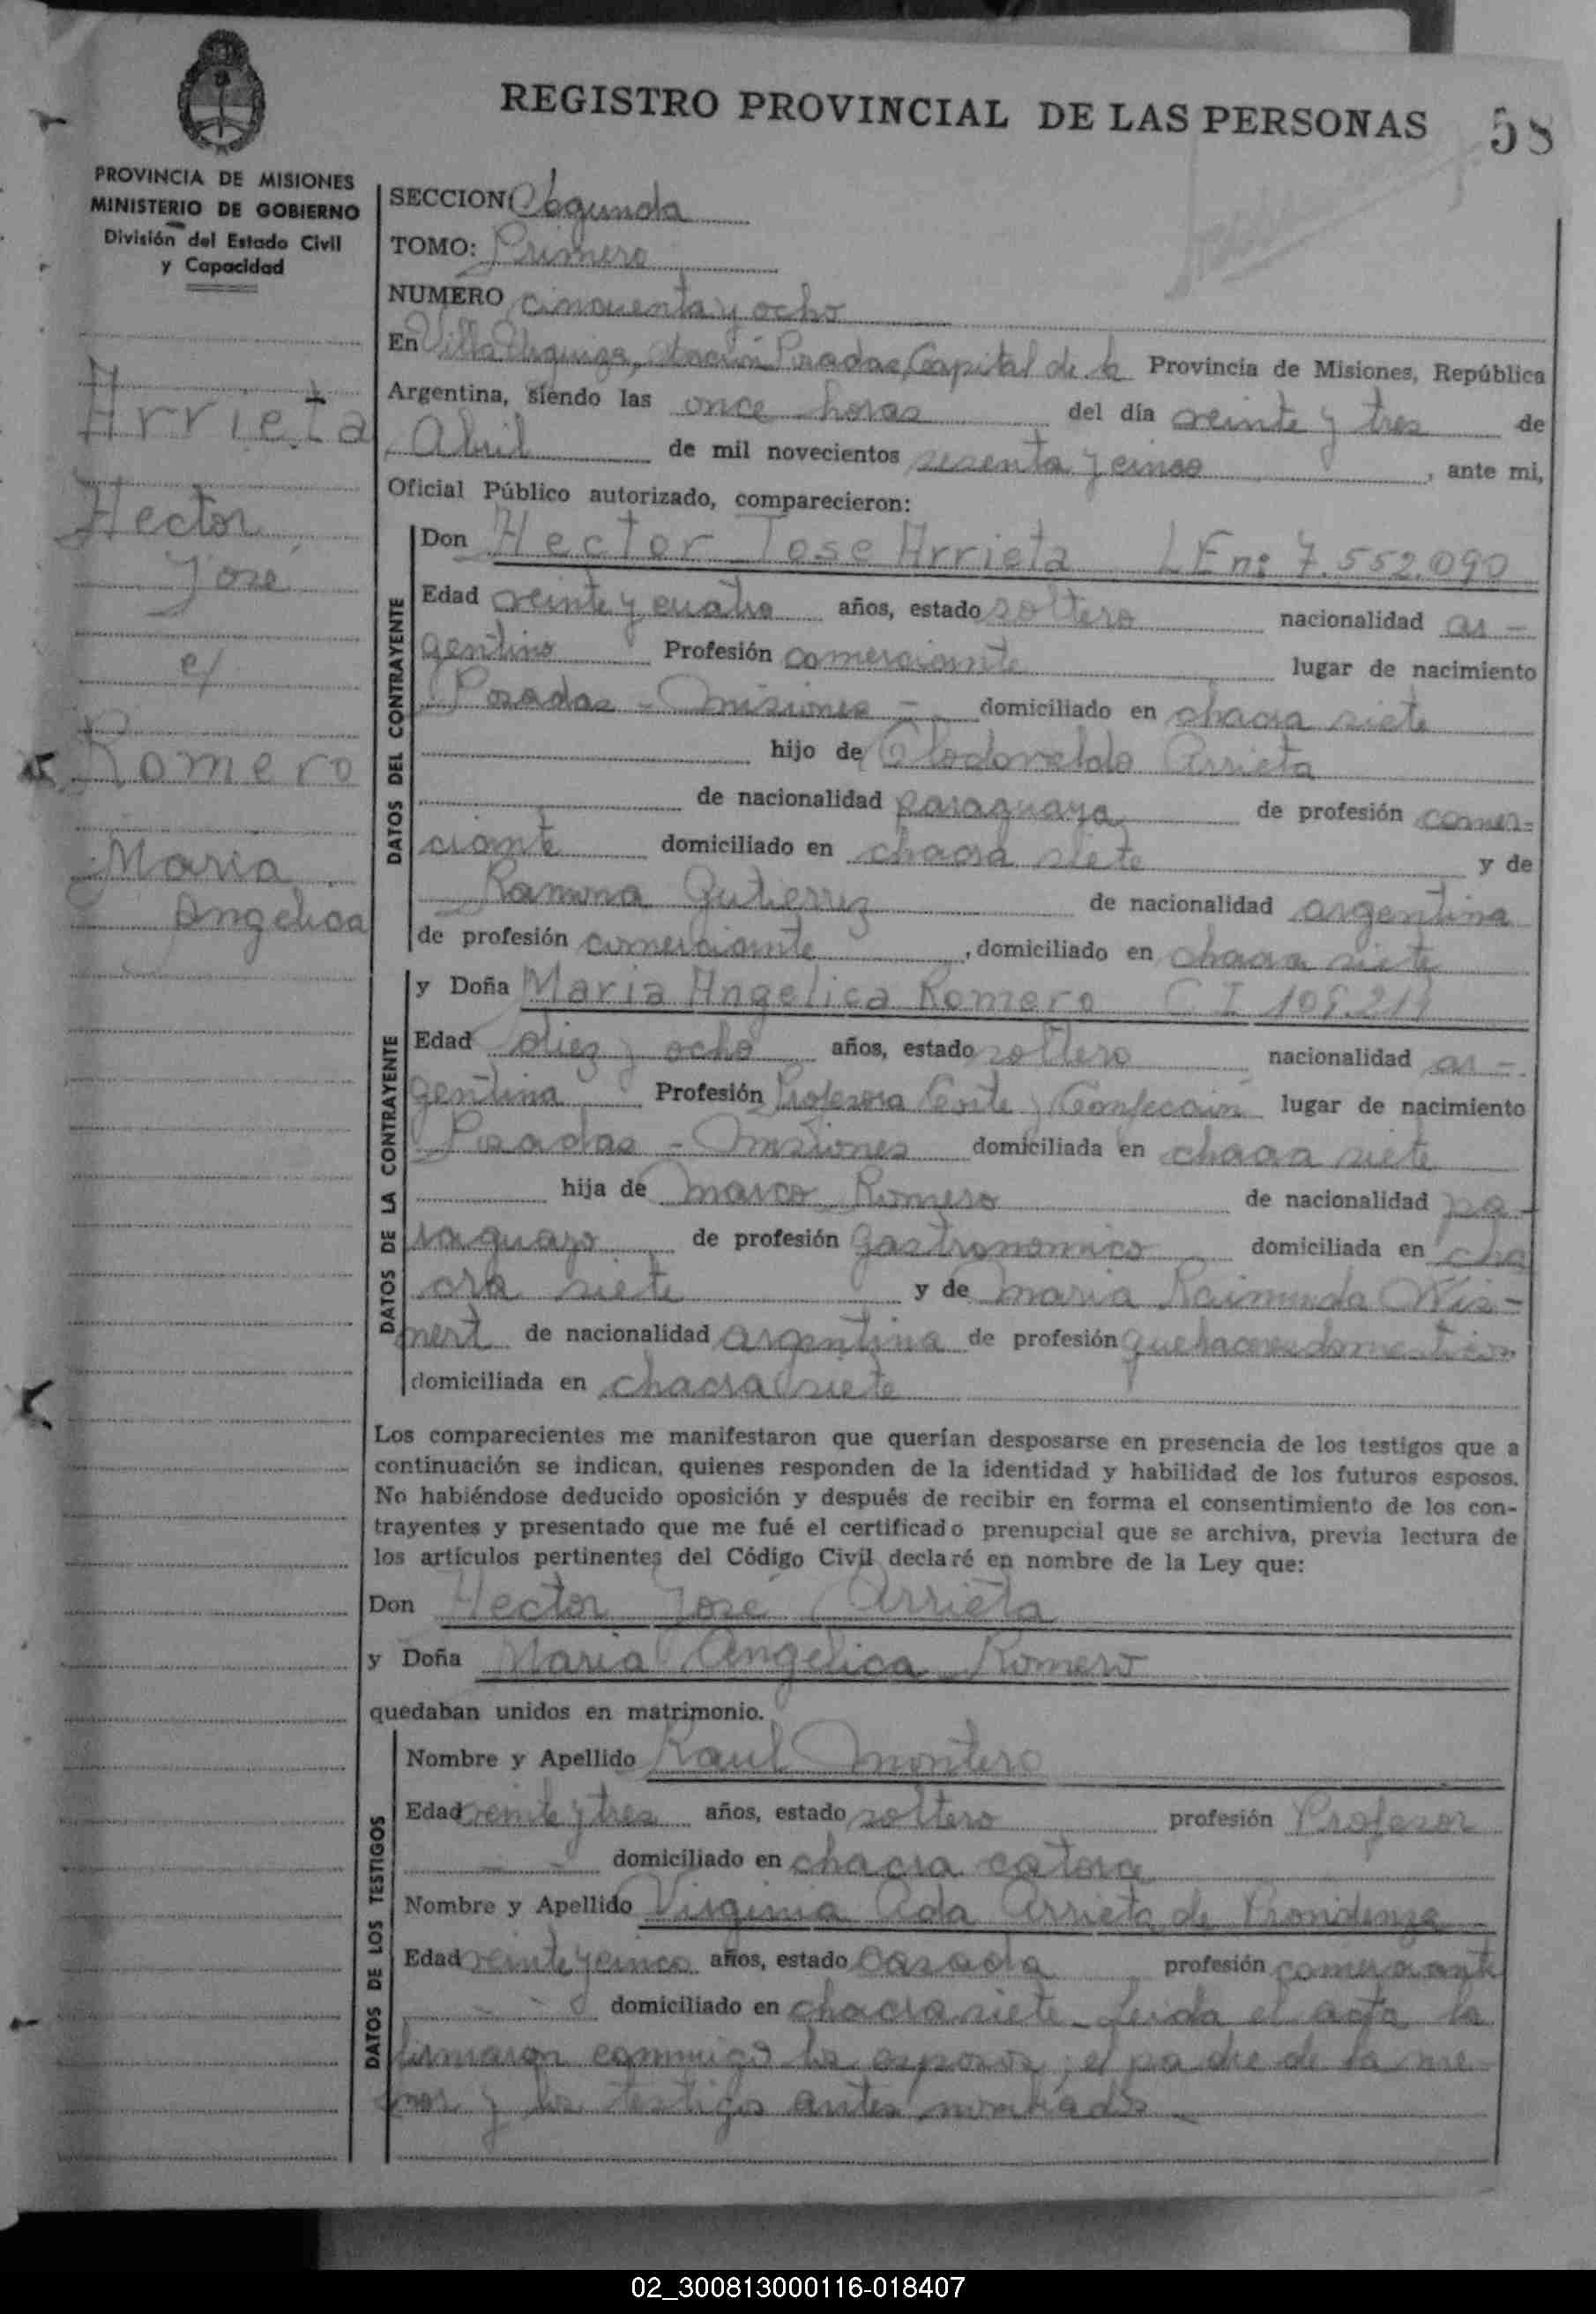 REGISTRO PROVINCIAL DE LAS PERSONAS 58
PROVINCIA DE MISIONES
MINISTERIO DE GOBIERNO
División del Estado Civil
y Capacidad
Arrieta
Hector
José
c/
Romero
Maria
Angelica
SECCION Segunda
TOMO: Primero
NUMERO cincuenta y ocho
En Villa Urquiza, Posadas, Capital de la Provincia de Misiones, República
Argentina, siendo las once horas del día veinte y tres de
Abril de mil novecientos sesenta y cinco, ante mi,
Oficial Público autorizado, comparecieron:
DATOS DEL CONTRAYENTE
Don Hector Jose Arrieta L E nº 7.552.090
Edad veinte y cuatro años, estado soltero nacionalidad ar-
gentino Profesión comerciante lugar de nacimiento
Posadas - Misiones - domiciliado en chacra siete
hijo de Clodoveldo Arrieta
de nacionalidad paraguaya de profesión comer-
ciante domiciliado en chacra siete y de
Ramona Gutierrez de nacionalidad argentina
de profesión comerciante, domiciliado en chacra siete
DATOS DE LA CONTRAYENTE
y Doña Maria Angelica Romero C I
Edad diez y ocho años, estado soltero nacionalidad ar-
gentina Profesión Profesora Corte y Confección lugar de nacimiento
Posadas - Misiones domiciliada en chacra siete
hija de Marco Romero de nacionalidad pa-
raguayo de profesión gastronomico domiciliada en cha
cra siete y de Maria Raimunda
de nacionalidad argentina de profesión quehaceres domesticos
domiciliada en chacra siete
Los comparecientes me manifestaron que querían desposarse en presencia de los testigos que a
continuación se indican, quienes responden de la identidad y habilidad de los futuros esposos.
No habiéndose deducido oposición y después de recibir en forma el consentimiento de los con-
trayentes y presentado que me fué el certificado prenupcial que se archiva, previa lectura de
los artículos pertinentes del Código Civil declaré en nombre de la Ley que:
Don Hector José Arrieta
y Doña Maria Angelica Romero
quedaban unidos en matrimonio.
DATOS DE LOS TESTIGOS
Nombre y Apellido Raul Montero
Edad veinte y tres años, estado soltero profesión Profesor
domiciliado en chacra catorce
Nombre y Apellido Virginia Ada Arrieta de
Edad veinte y cinco años, estado casada profesión comerciante
domiciliado en chacra siete - Leida el acta la
firmaron conmigo los esposos, el padre de la me-
nor y los testigos antes nombrados -
02_300813000116-018407